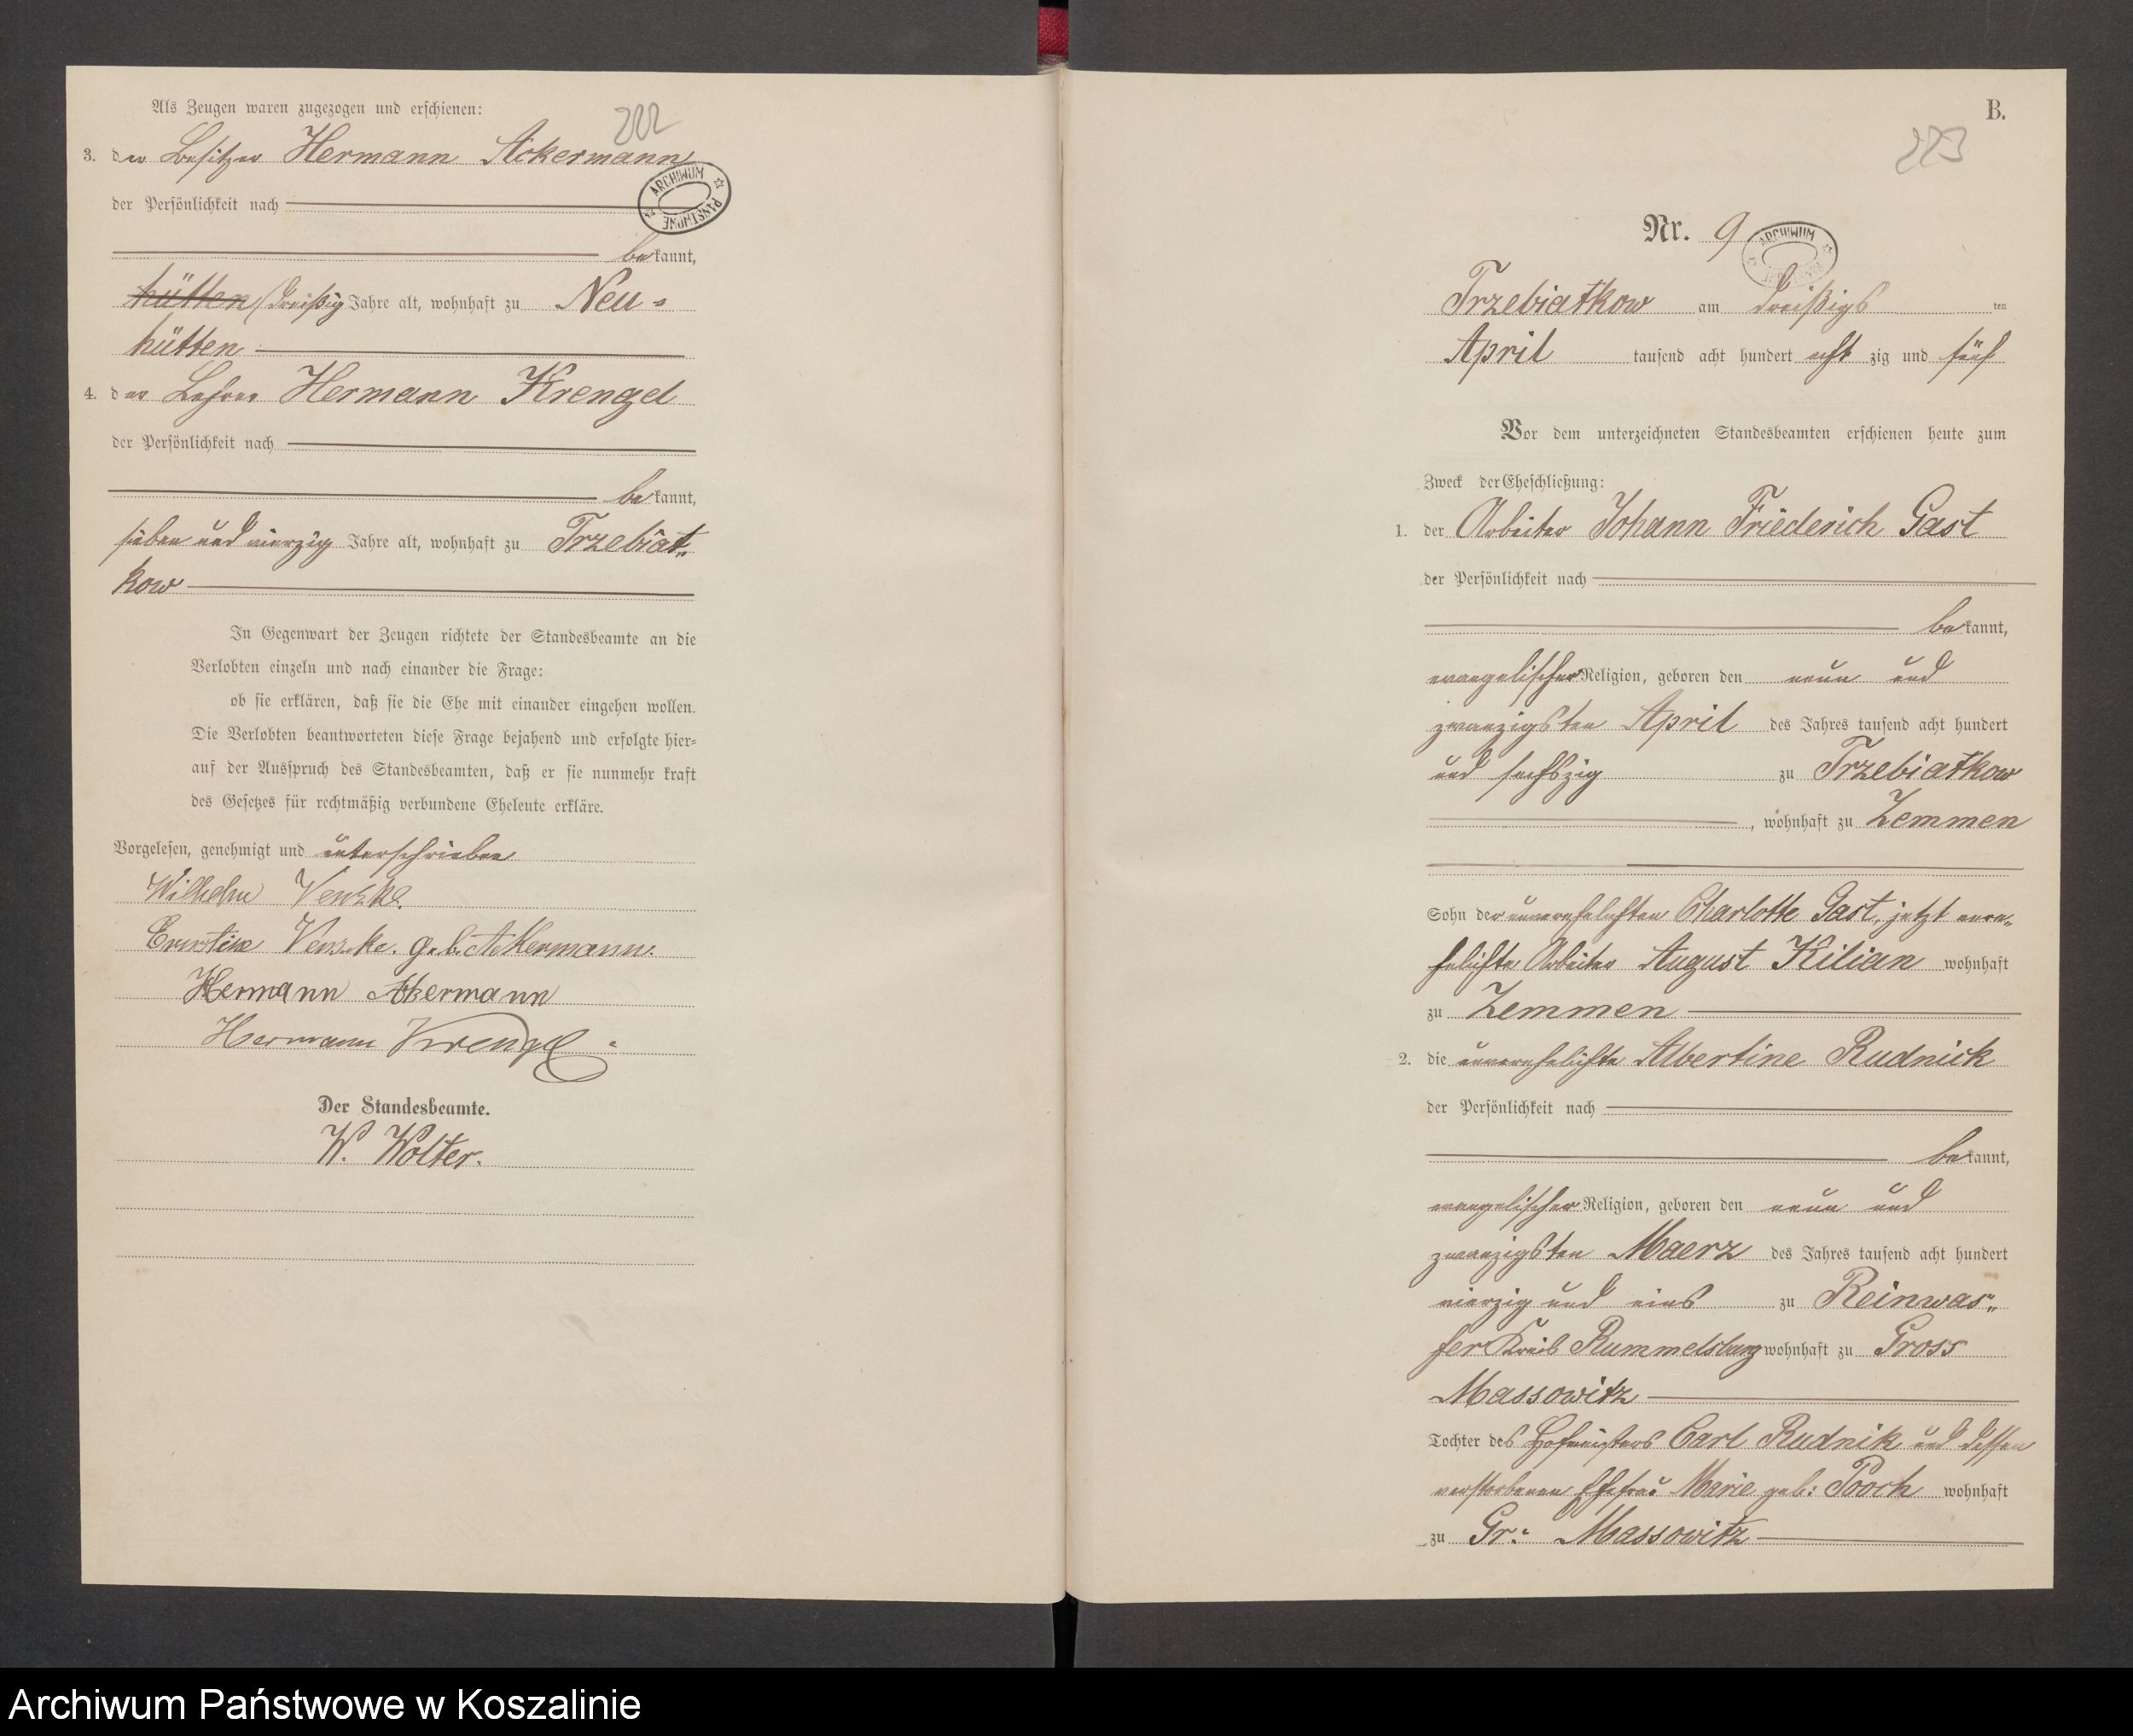 Als Zeugen waren zugezogen und erschienen:
222
3. der Besitzer Hermann Ackermann
ARCHIWUM PAŃSTWOWE
der Persönlichkeit nach
bekannt,
hütten dreißig Jahre alt, wohnhaft zu Neu-
hütten
4. der Lehrer Hermann Krengel
der Persönlichkeit nach
bekannt,
sieben und vierzig Jahre alt, wohnhaft zu Trzebiat-
kow
In Gegenwart der Zeugen richtete der Standesbeamte an die
Verlobten einzeln und nach einander die Frage:
ob sie erklären, daß sie die Ehe mit einander eingehen wollen.
Die Verlobten beantworteten diese Frage bejahend und erfolgte hier-
auf der Ausspruch des Standesbeamten, daß er sie nunmehr kraft
des Gesetzes für rechtmäßig verbundene Eheleute erkläre.
Vorgelesen, genehmigt und unterschrieben
Wilhelm Venzke.
Ernstine Venzke. geb. Ackermann.
Hermann Ackermann
Hermann Krengel.
Der Standesbeamte.
W. Wolter.
B.
223
Nr. 9
ARCHIWUM
Trzebiatkow am dreißigsten
April tausend acht hundert achtzig und fünf
Vor dem unterzeichneten Standesbeamten erschienen heute zum
Zweck der Eheschließung:
1. der Arbeiter Johann Friederich Gast
der Persönlichkeit nach
bekannt,
evangelischer Religion, geboren den neun und
zwanzigsten April des Jahres tausend acht hundert
und sechszig zu Trzebiatkow
, wohnhaft zu Zemmen
Sohn der unverehelichten Charlotte Gast, jetzt vere-
helichte Arbeiter August Kilian wohnhaft
zu Zemmen
2. die unverehelichte Albertine Rudnick
der Persönlichkeit nach
bekannt,
evangelischer Religion, geboren den neun und
zwanzigsten Maerz des Jahres tausend acht hundert
vierzig und eins zu Reinwas-
ser Kreis Rummelsburg wohnhaft zu Gross
Massowitz
Tochter des Hofmeisters Carl Rudnik und dessen
verstorbenen Ehefrau Marie geb: Pooch wohnhaft
zu Gr: Massowitz
Archiwum Państwowe w Koszalinie